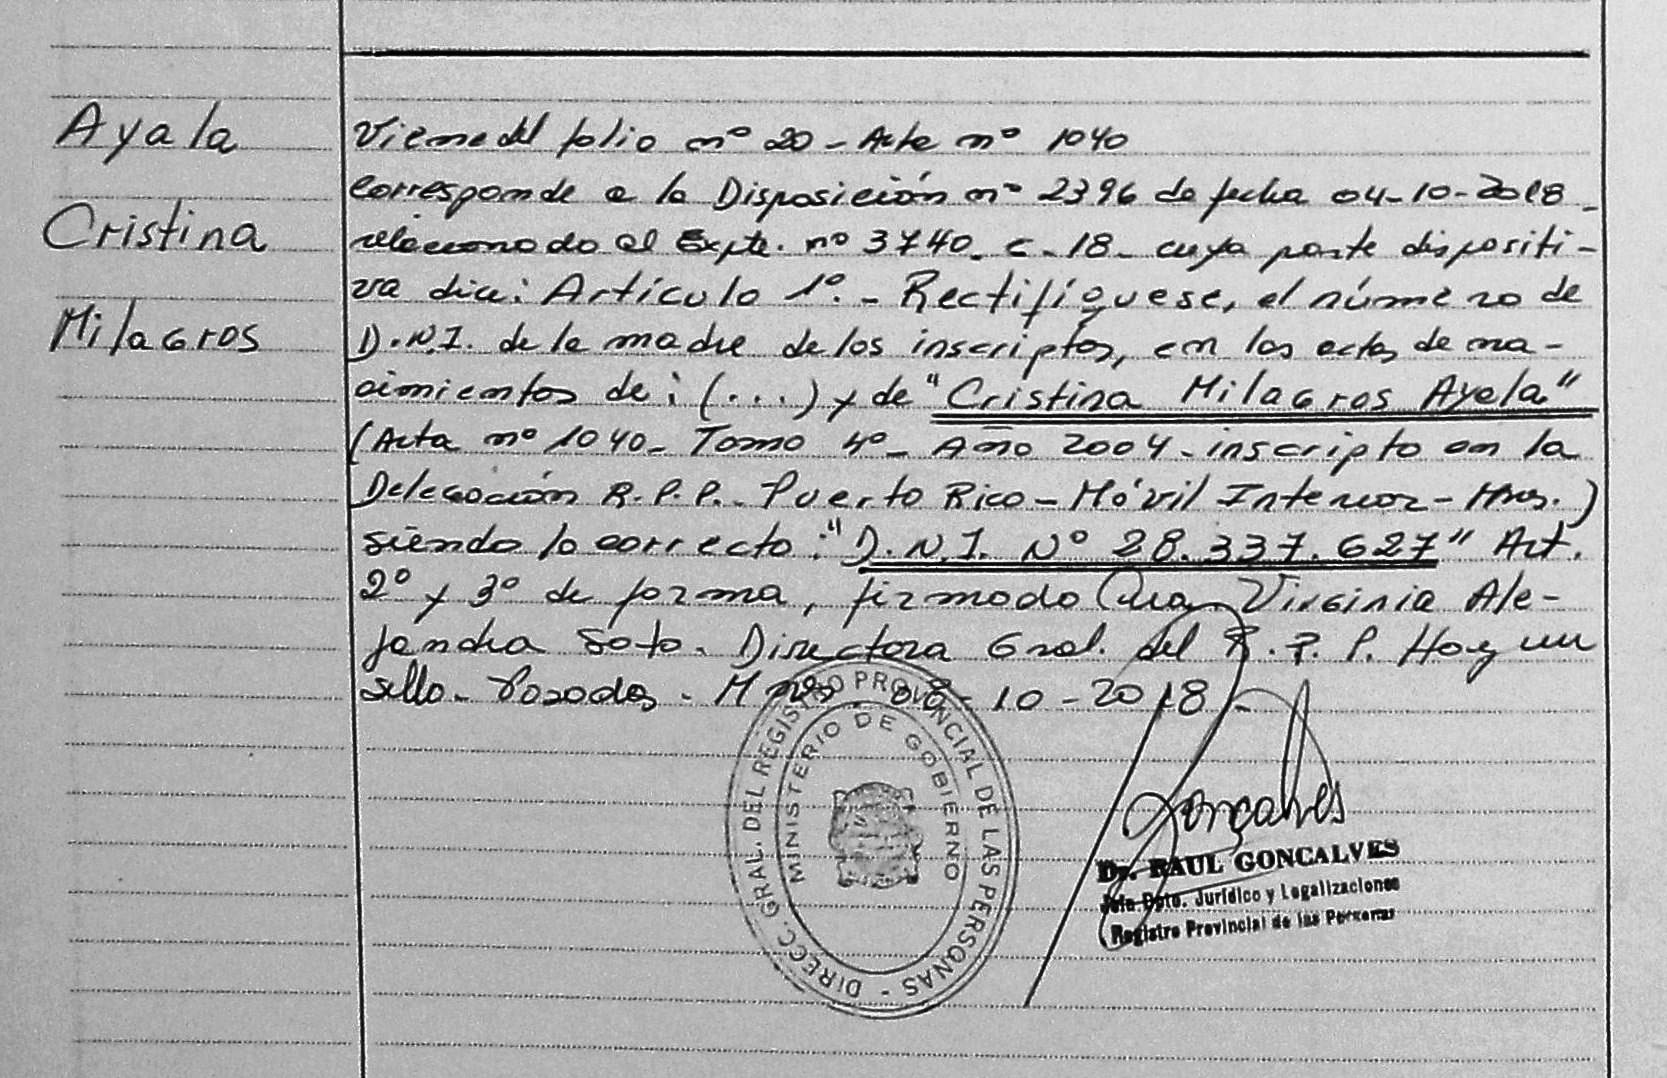 Ayala
Cristina
Milagros
Viene del folio nº 20 - Acta nº 1040
Corresponde a la Disposición nº 2396 de fecha 04-10-2018
relacionado al Expte. nº 3740 - C - 18 - cuya parte dispositi-
va dice: Artículo 1º. - Rectifíquese, el número de
D.N.I. de la madre de los inscriptos, en las actas de na-
cimientos de: (...) y de "Cristina Milagros Ayala"
(Acta nº 1040 - Tomo 4º - Año 2004 - inscripto en la
Delegación R.P.P. Puerto Rico - Móvil Interior - Mnes.)
siendo lo correcto: "D.N.I. Nº 28.337.627" Art.
2º y 3º de forma, firmado Dra. Virginia Ale-
jandra Soto. Directora Gral. del R.P.P. Hay un
sello - Posadas - Mnes 08-10-2018 -
DIRECC. GRAL. DEL REGISTRO PROVINCIAL DE LAS PERSONAS -
MINISTERIO DE GOBIERNO
Gonçalves
Dr. RAUL GONCALVES
Jefe Dpto. Jurídico y Legalizaciones
Registro Provincial de las Personas